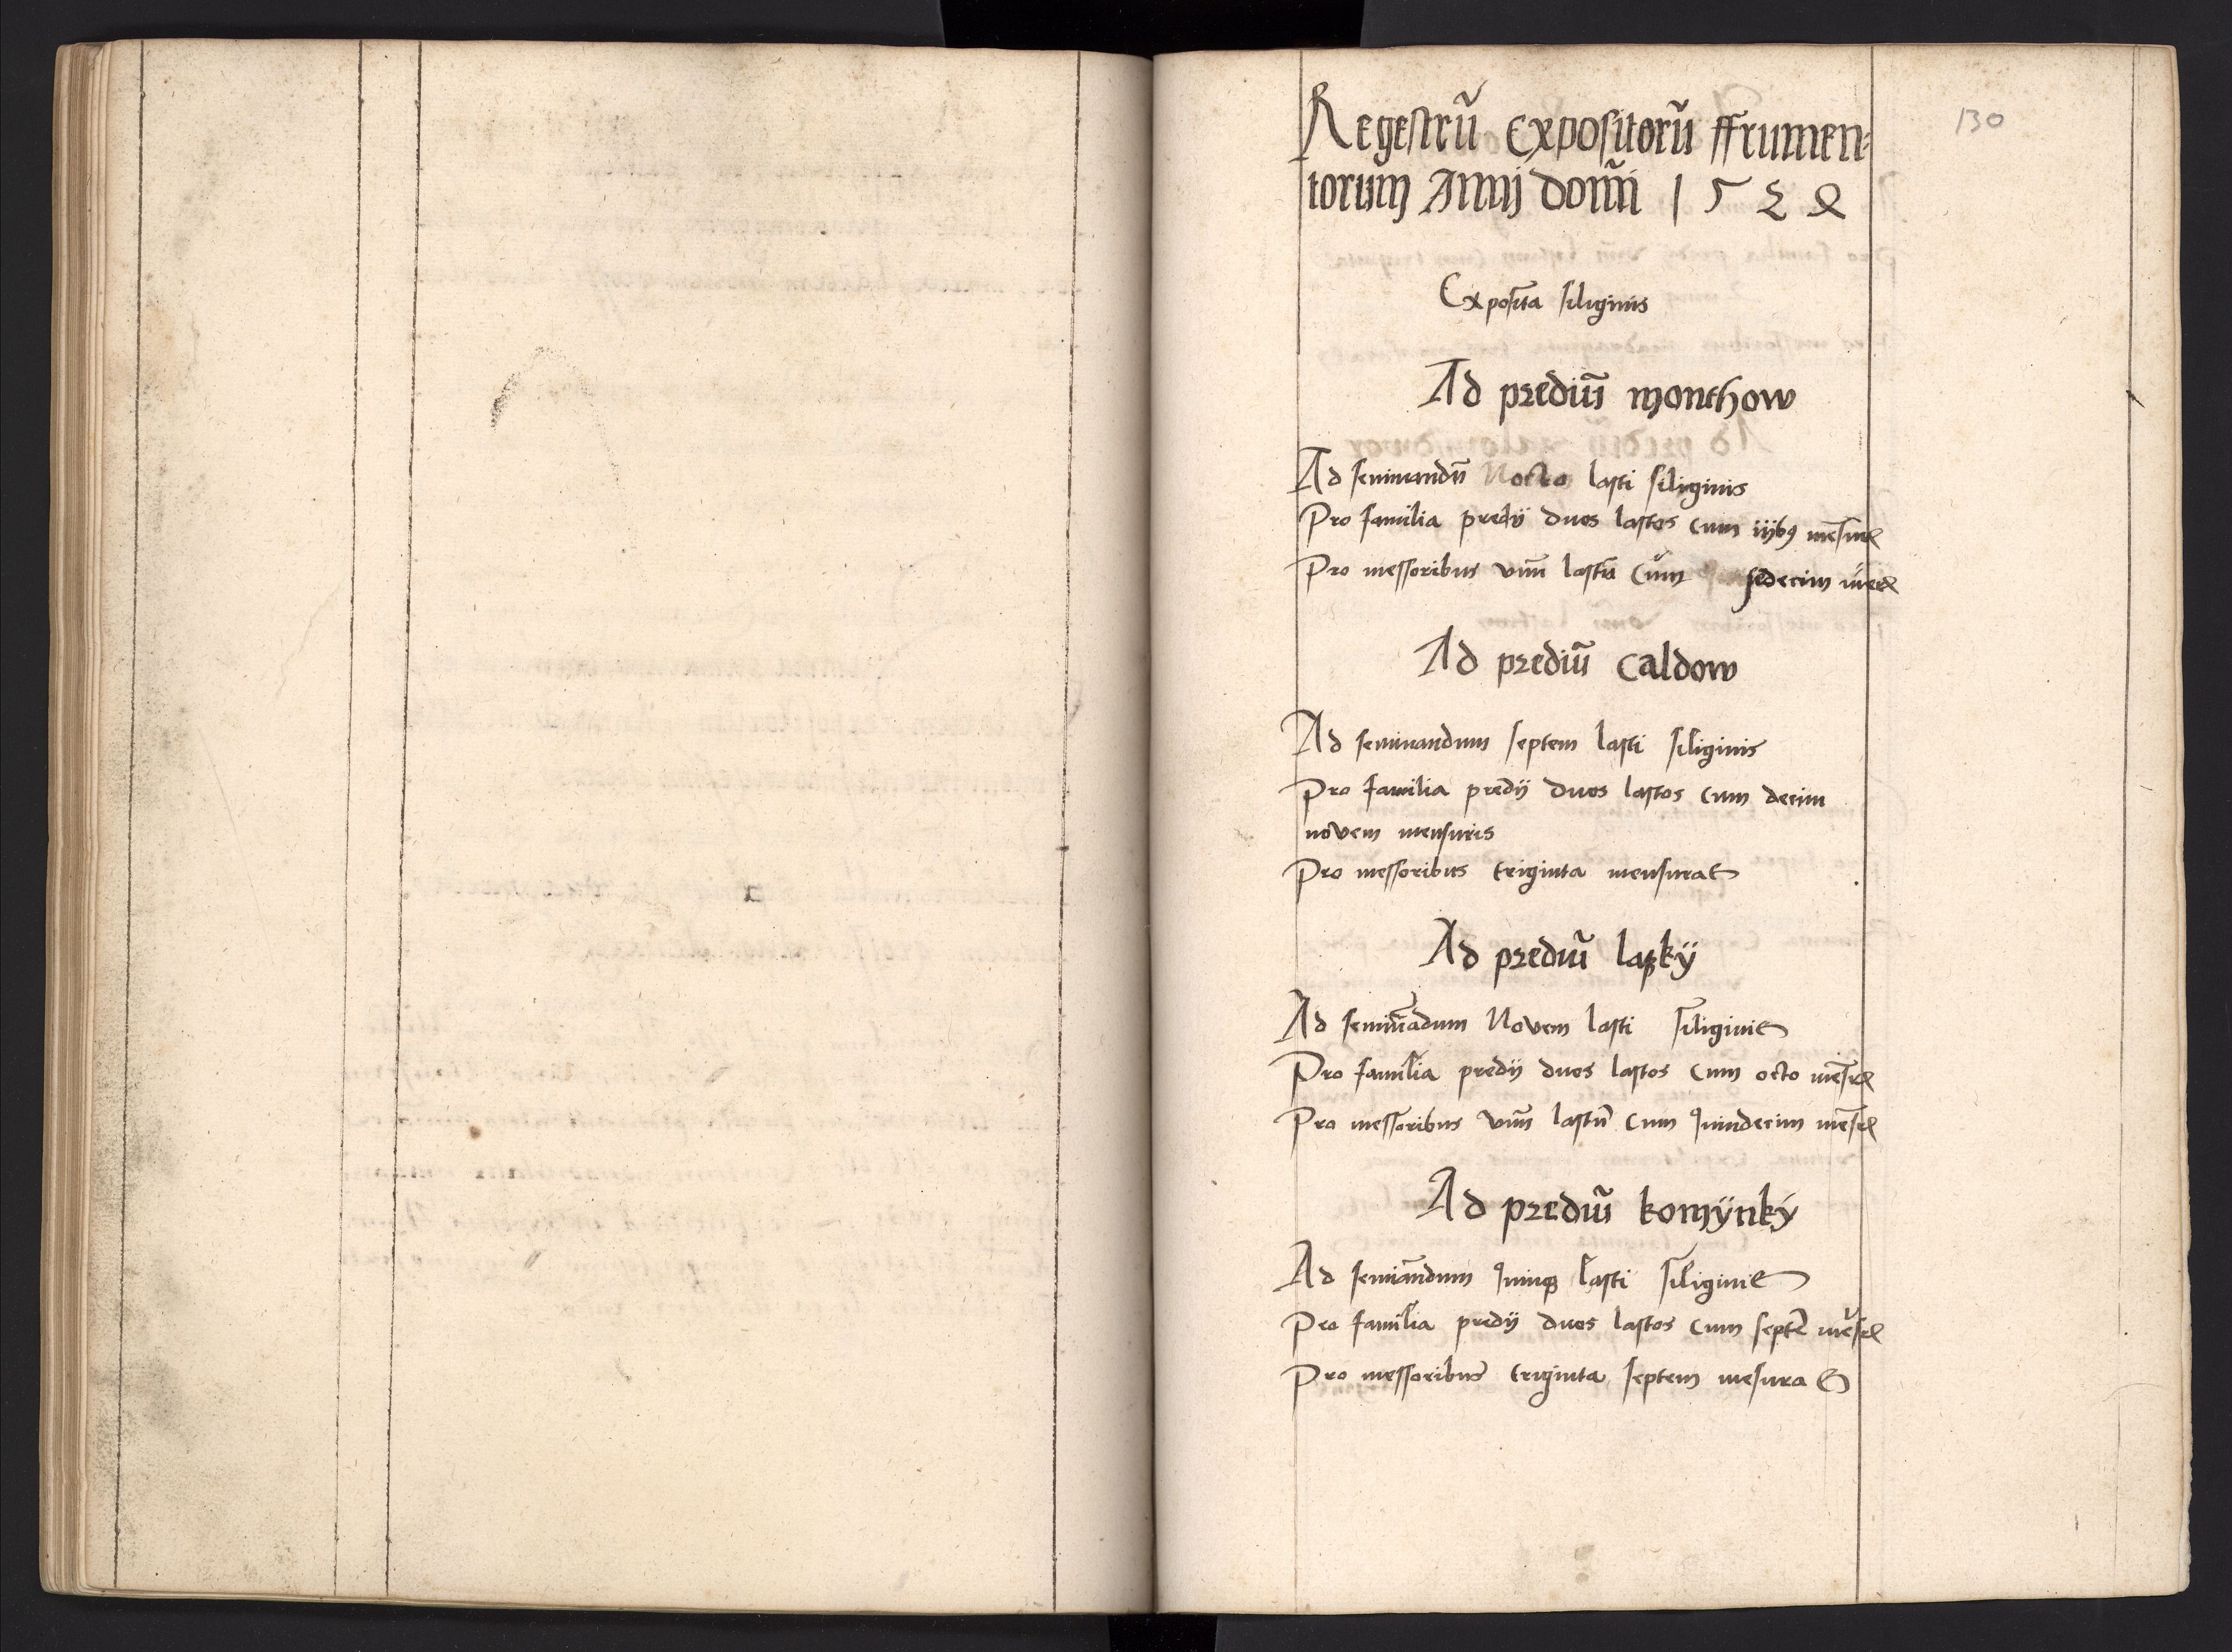 130
Regestrū Expositorū ffrumen-
torum Anni domī 1524
Exposita siliginis
Ad prediū monthow
Ad seminandū octo lasti siliginis
Pro familia predij duos lastos cum iijbꝯ mēsur
Pro messoribus vnū lastū Cum sedecim
Ad prediū Caldow
Ad seminandum septem lasti siliginis
Pro familia predij duos lastos cum decim
novem mensuris
Pro messoribus triginta mensuras
Ad prediū laszkÿ
Ad semināndum Novem lasti siliginis
Pro familia predij duos lastos Cum octo mēsꝝ
Pro messoribus vnū lastū Cum quindecim mēsꝝ
Ad prediū komÿnký
Ad semināndum quinqꝫ lasti siliginis
Pro familia predij duos lastos cum septē mēsꝝ
Pro messoribus triginta septem mesuras